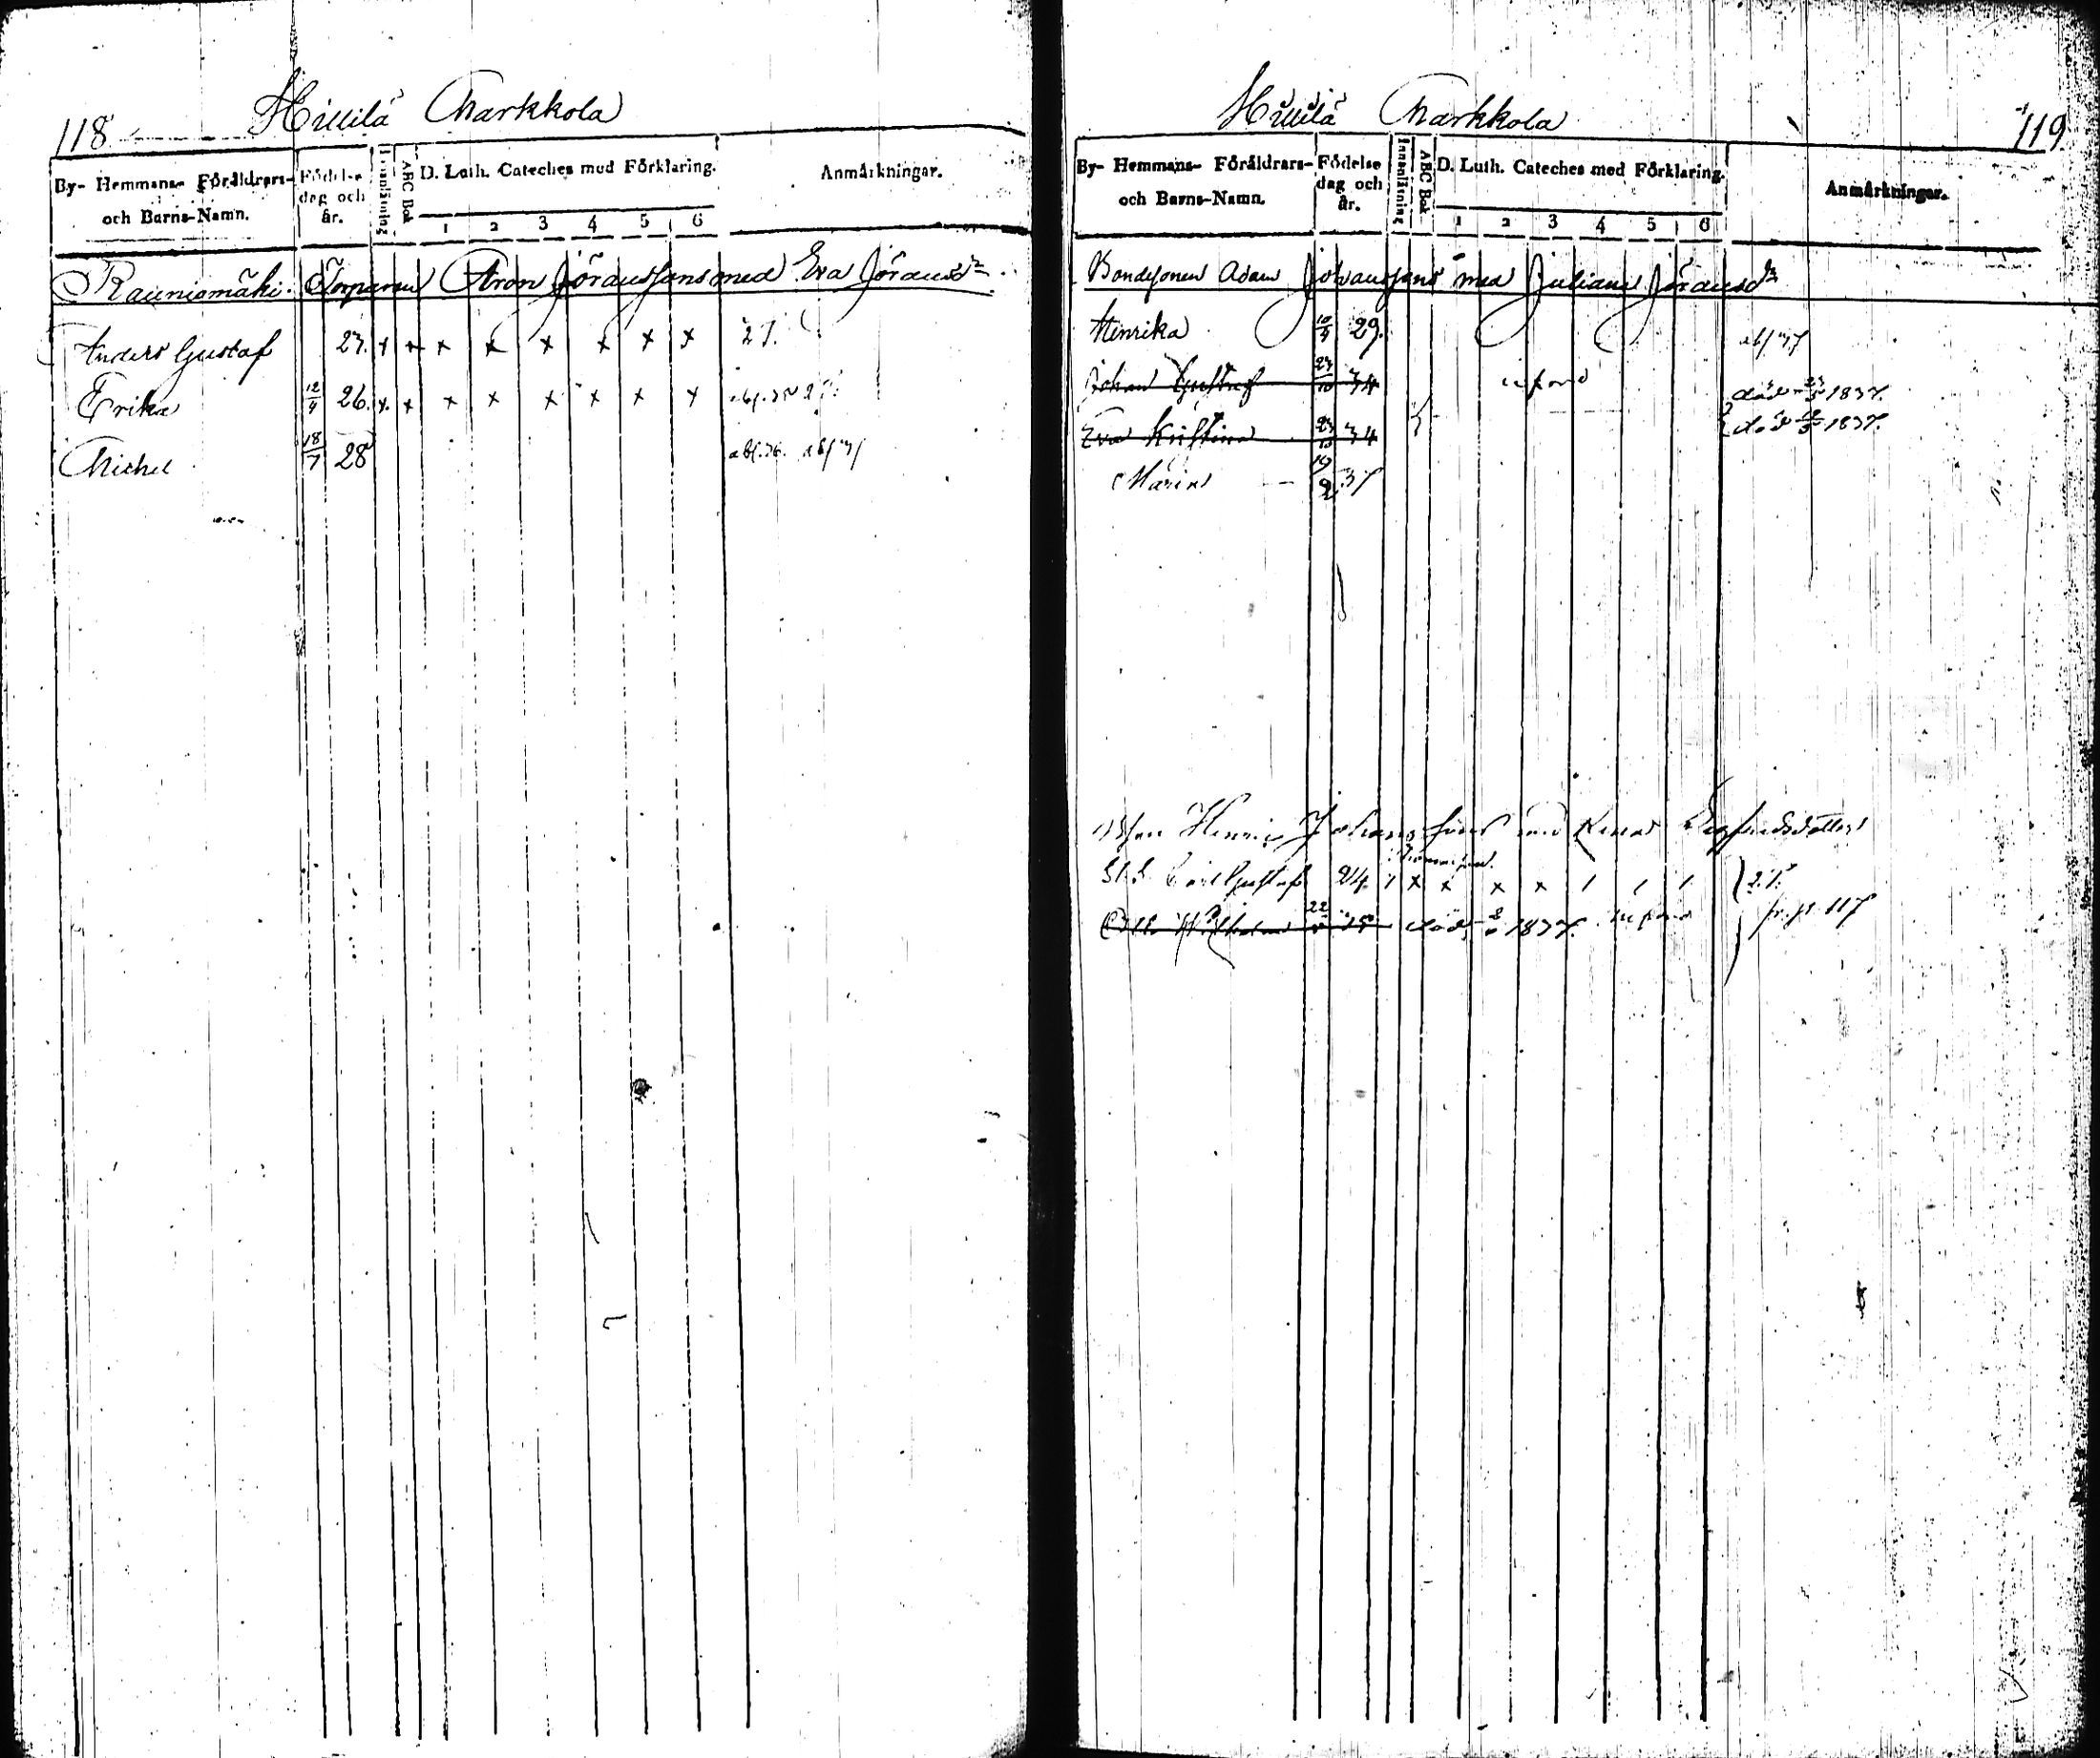 118
Hillilä Markkola
By- Hemmans- Föräldrars- och Barns-Namn.
Födelse dag och år.
Innanläsning
ABC Bok
D. Luth. Cateches med Förklaring.
1 2 3 4 5 6
Anmärkningar.
Rauniomäki. Torparen Aron Jöranssons med Eva Jöransdr
Anders Gustaf 27. x x x x x x x x 27.
Erika 12/4 26. x x x x x x x x
Michel 18/7 28
119
Hillilä Markkola
By- Hemmans- Föräldrars- och Barns-Namn.
Födelse dag och år.
Innanläsning
ABC Bok
D. Luth. Cateches med Förklaring.
1 2 3 4 5 6
Anmärkningar.
Bondesonen Adam Johanssons med Juliana Jöransdr
Henrika 10/4 29.
Johan Gustaf 23/10 34 död 1837.
Eva Kristina 23/10 34 död 1837.
Maria 19/9 37
Henric Johanssons med Lena Sigfridsdotter
Carl Gustaf 24 x x x x
Wilhelm 22 död 1837.
fr. p. 117